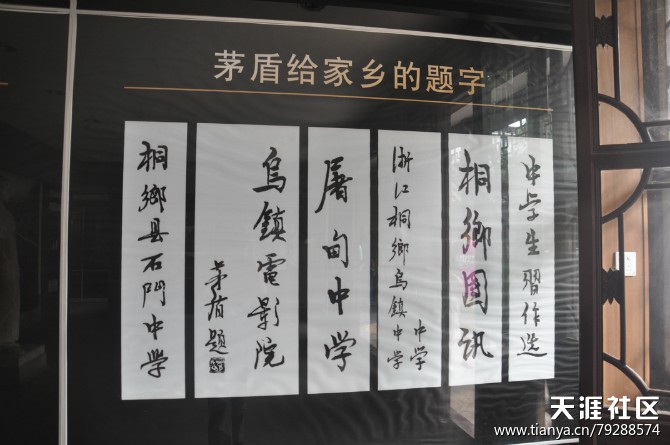 茅盾给家乡的题字
中学生習作选
桐鄉讯
浙江桐鄉烏鎮中学
中学
屠甸中学
烏鎮電影院
茅盾題
桐鄉县石門中学
天涯社区
www.tianya.cn/79288574